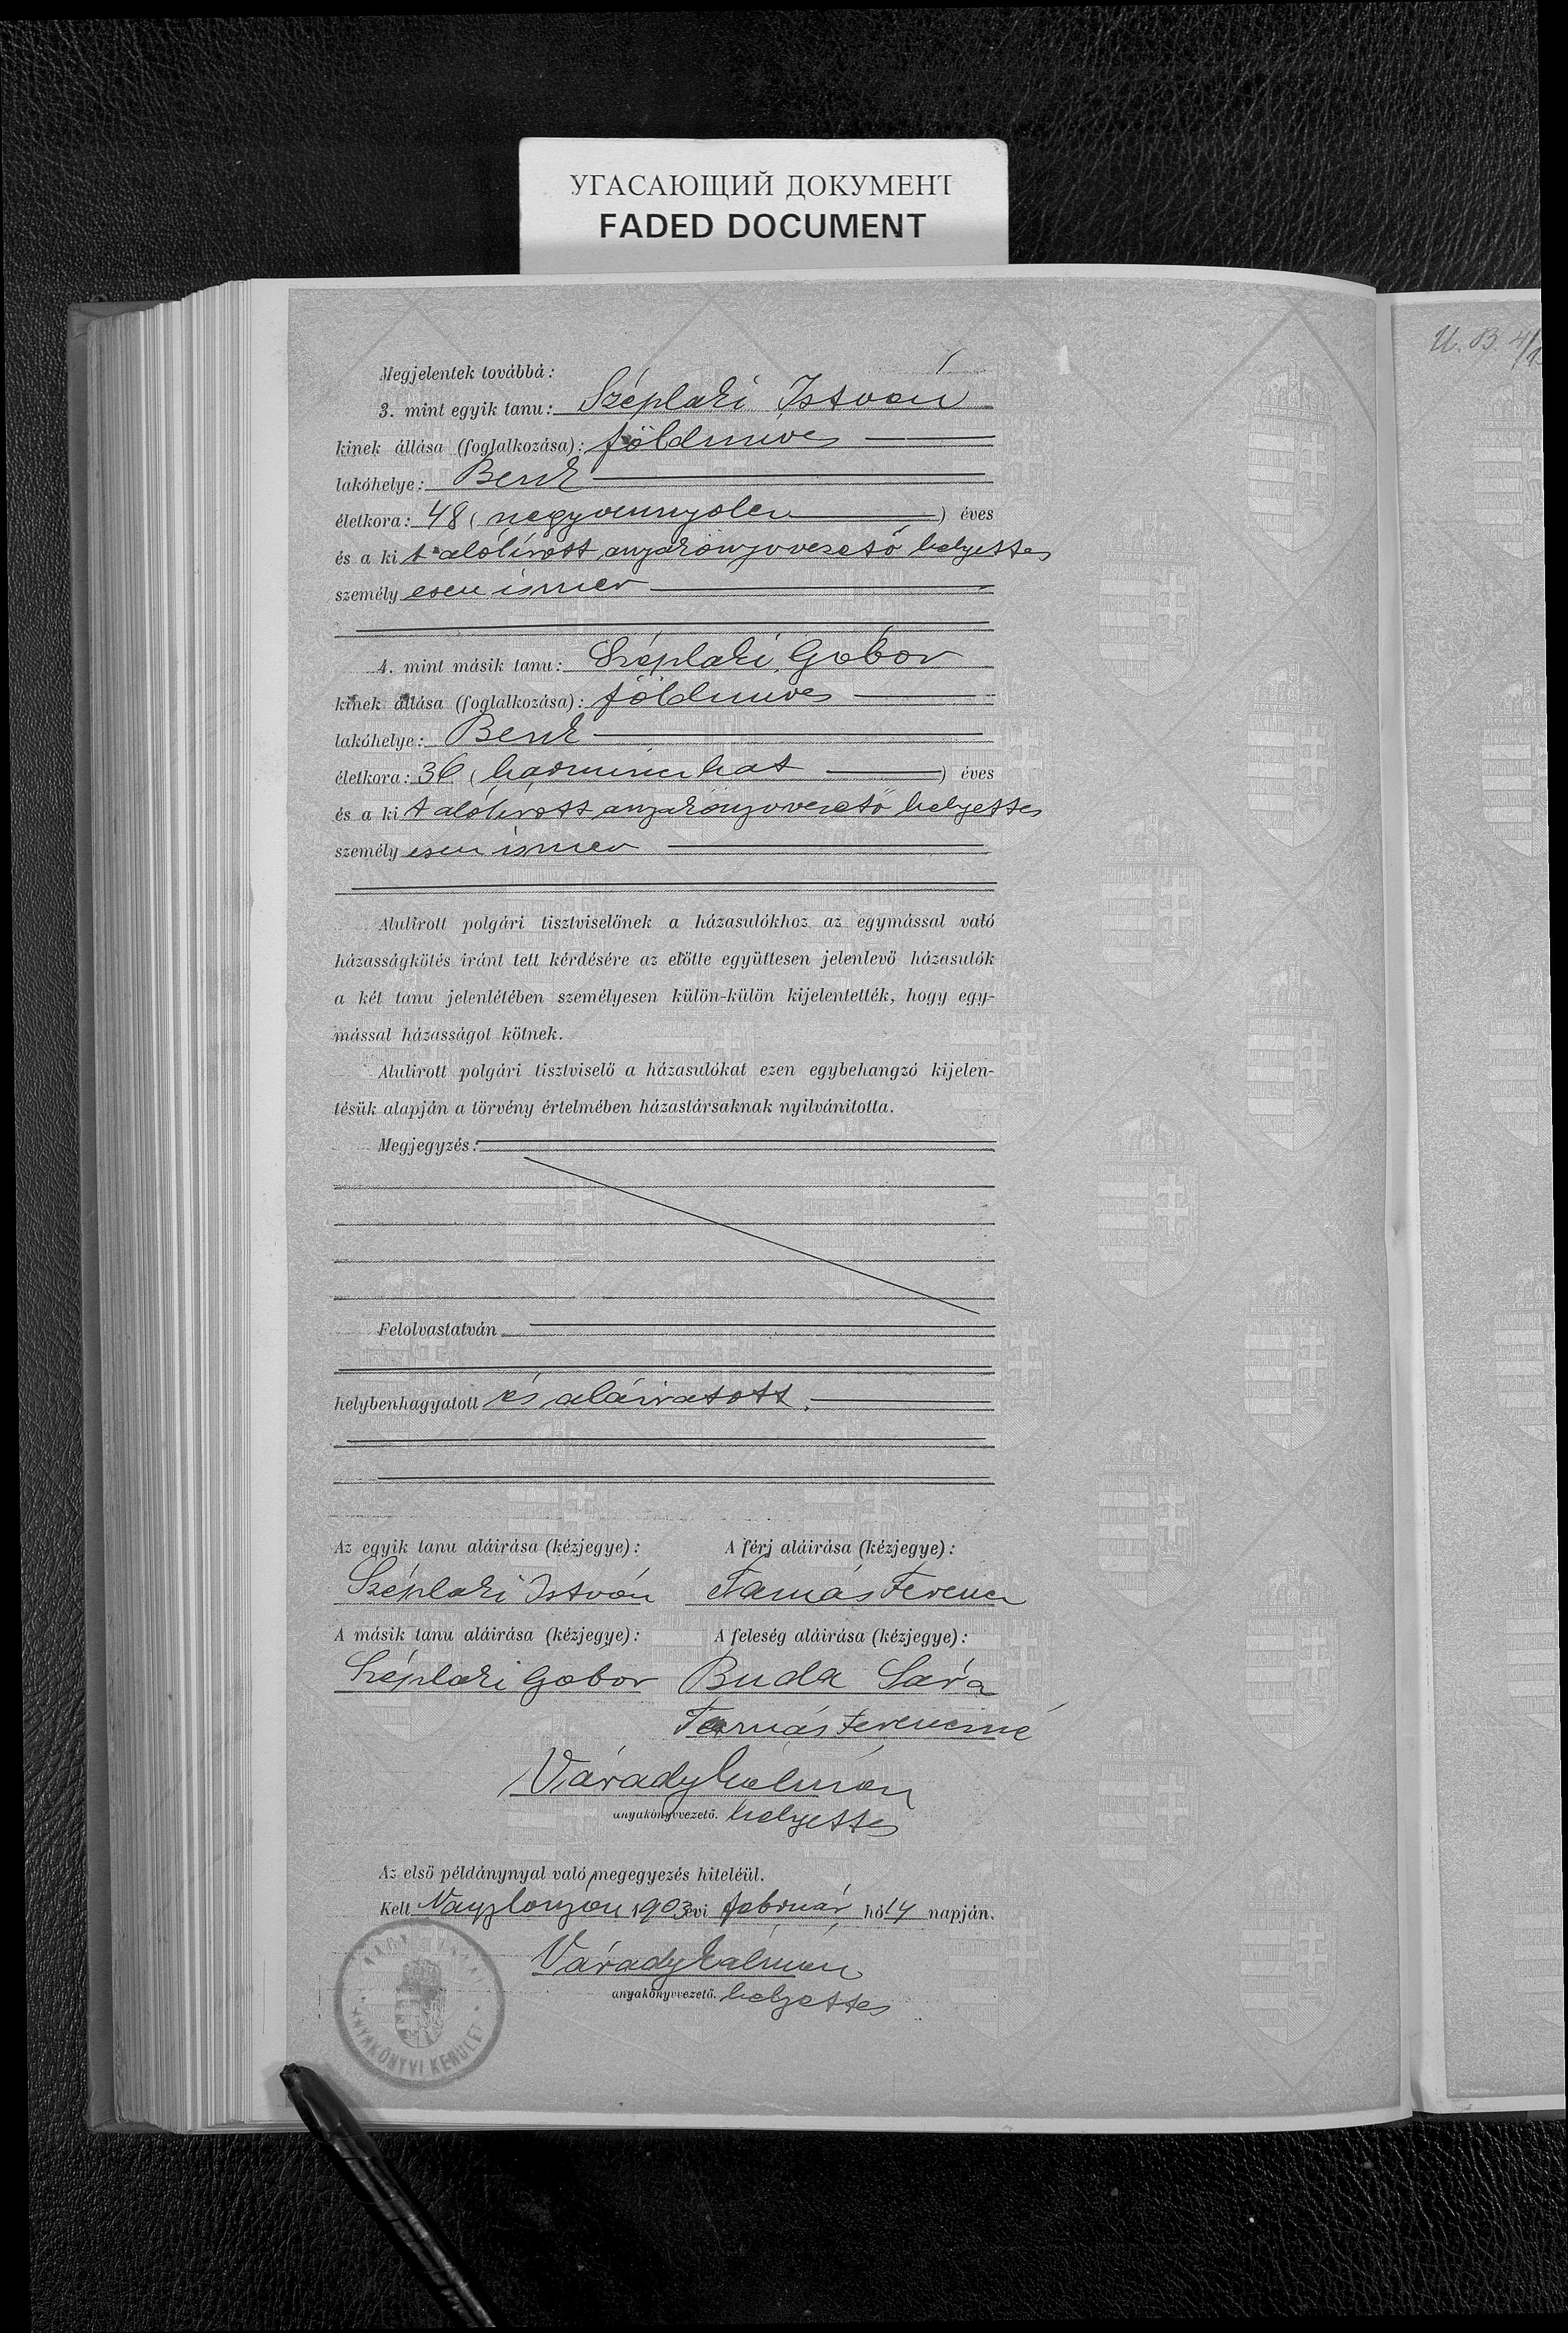 УГАСАЮЩИЙ ДОКУМЕНТ
FADED DOCUMENT
U. B. 4/
Megjelentek továbbá:
3. mint egyik tanu: Széplaki István
kinek állása (foglalkozása): földmives
lakóhelye: Benk
életkora: 48 (negyvennyolcz) éves
és a kit alólirott anyakönyvvezető helyettes
személyesen ismer
4. mint másik tanu: Széplaki Gábor
kinek állása (foglalkozása): földmives
lakóhelye: Benk
életkora: 36 (harminczhat) éves
és a kit alólirott anyakönyvvezető helyettes
személyesen ismer
Alulirott polgári tisztviselőnek a házasulókhoz az egymással való
házasságkötés iránt tett kérdésére az előtte együttesen jelenlevő házasulók
a két tanu jelenlétében személyesen külön-külön kijelentették, hogy egy-
mással házasságot kötnek.
Alulirott polgári tisztviselő a házasulókat ezen egybehangzó kijelen-
tésük alapján a törvény értelmében házastársaknak nyilvánitotta.
Megjegyzés:
Felolvastatván
helybenhagyatott és aláiratott.
Az egyik tanu aláirása (kézjegye): A férj aláirása (kézjegye):
Széplaki István Tamás Ferencz
A másik tanu aláirása (kézjegye): A feleség aláirása (kézjegye):
Széplaki Gábor Buda Sára
Tamás Ferenczné
Várady Kálmán
anyakönyvvezető. helyettes
Az első példánynyal való megegyezés hiteléül.
Kelt Nagylonyán 1903 évi február hó 14 napján.
Várady Kálmán
anyakönyvvezető. helyettes
ANYAKÖNYVI KERÜLET